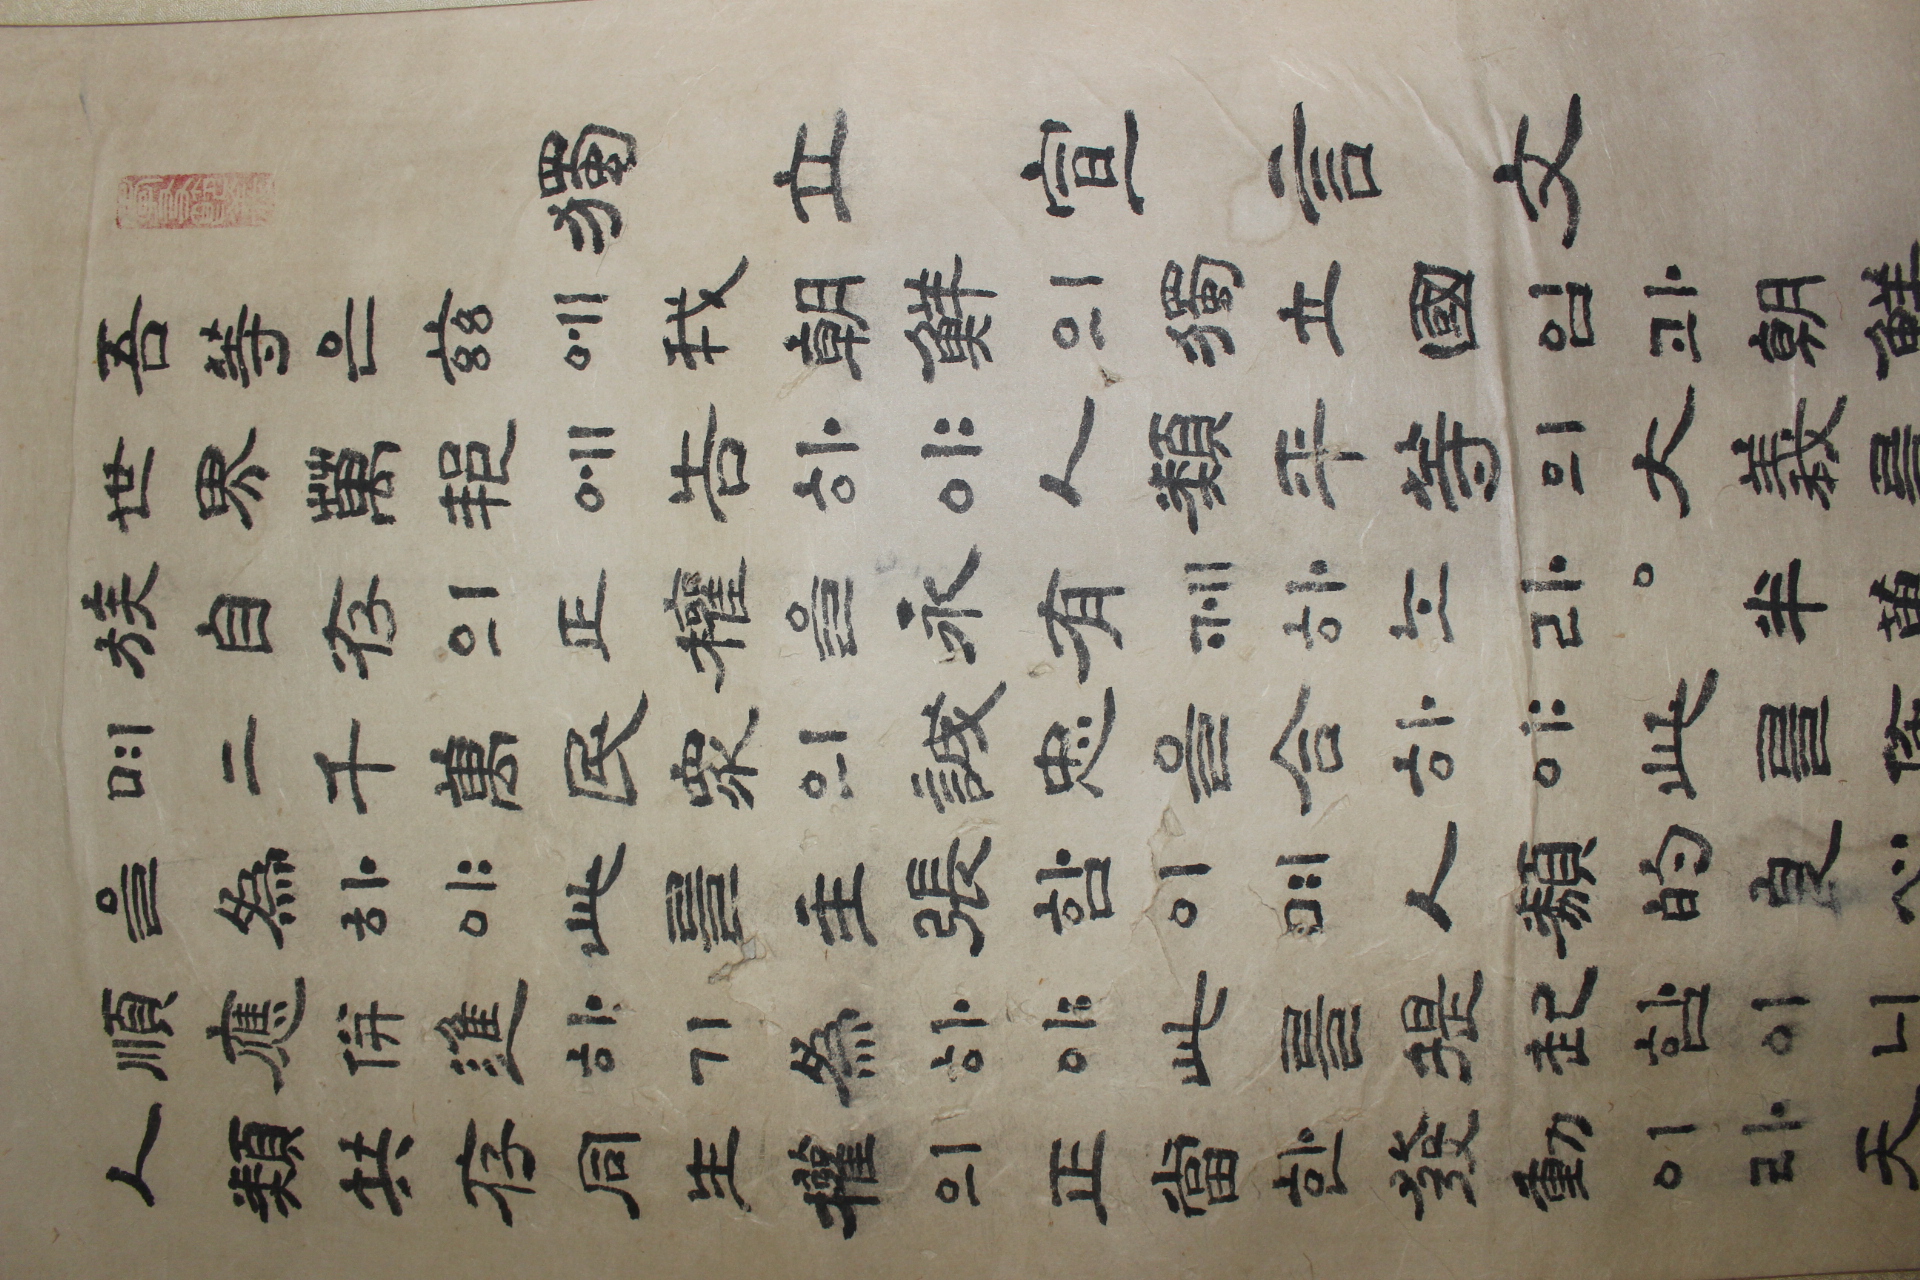 獨立宣言文
吾等은玆에我朝鮮의獨立國임과朝鮮
世界萬邦에告하야人類平等의大義를
族自存의正權을永有케하노라。半萬
며二千萬民衆의誠忠을合하야此를
을爲하야此를主張함이며人類的良心
順應併進하기爲하야此를提起함이니
人類共存同生權의正當한發動이라天